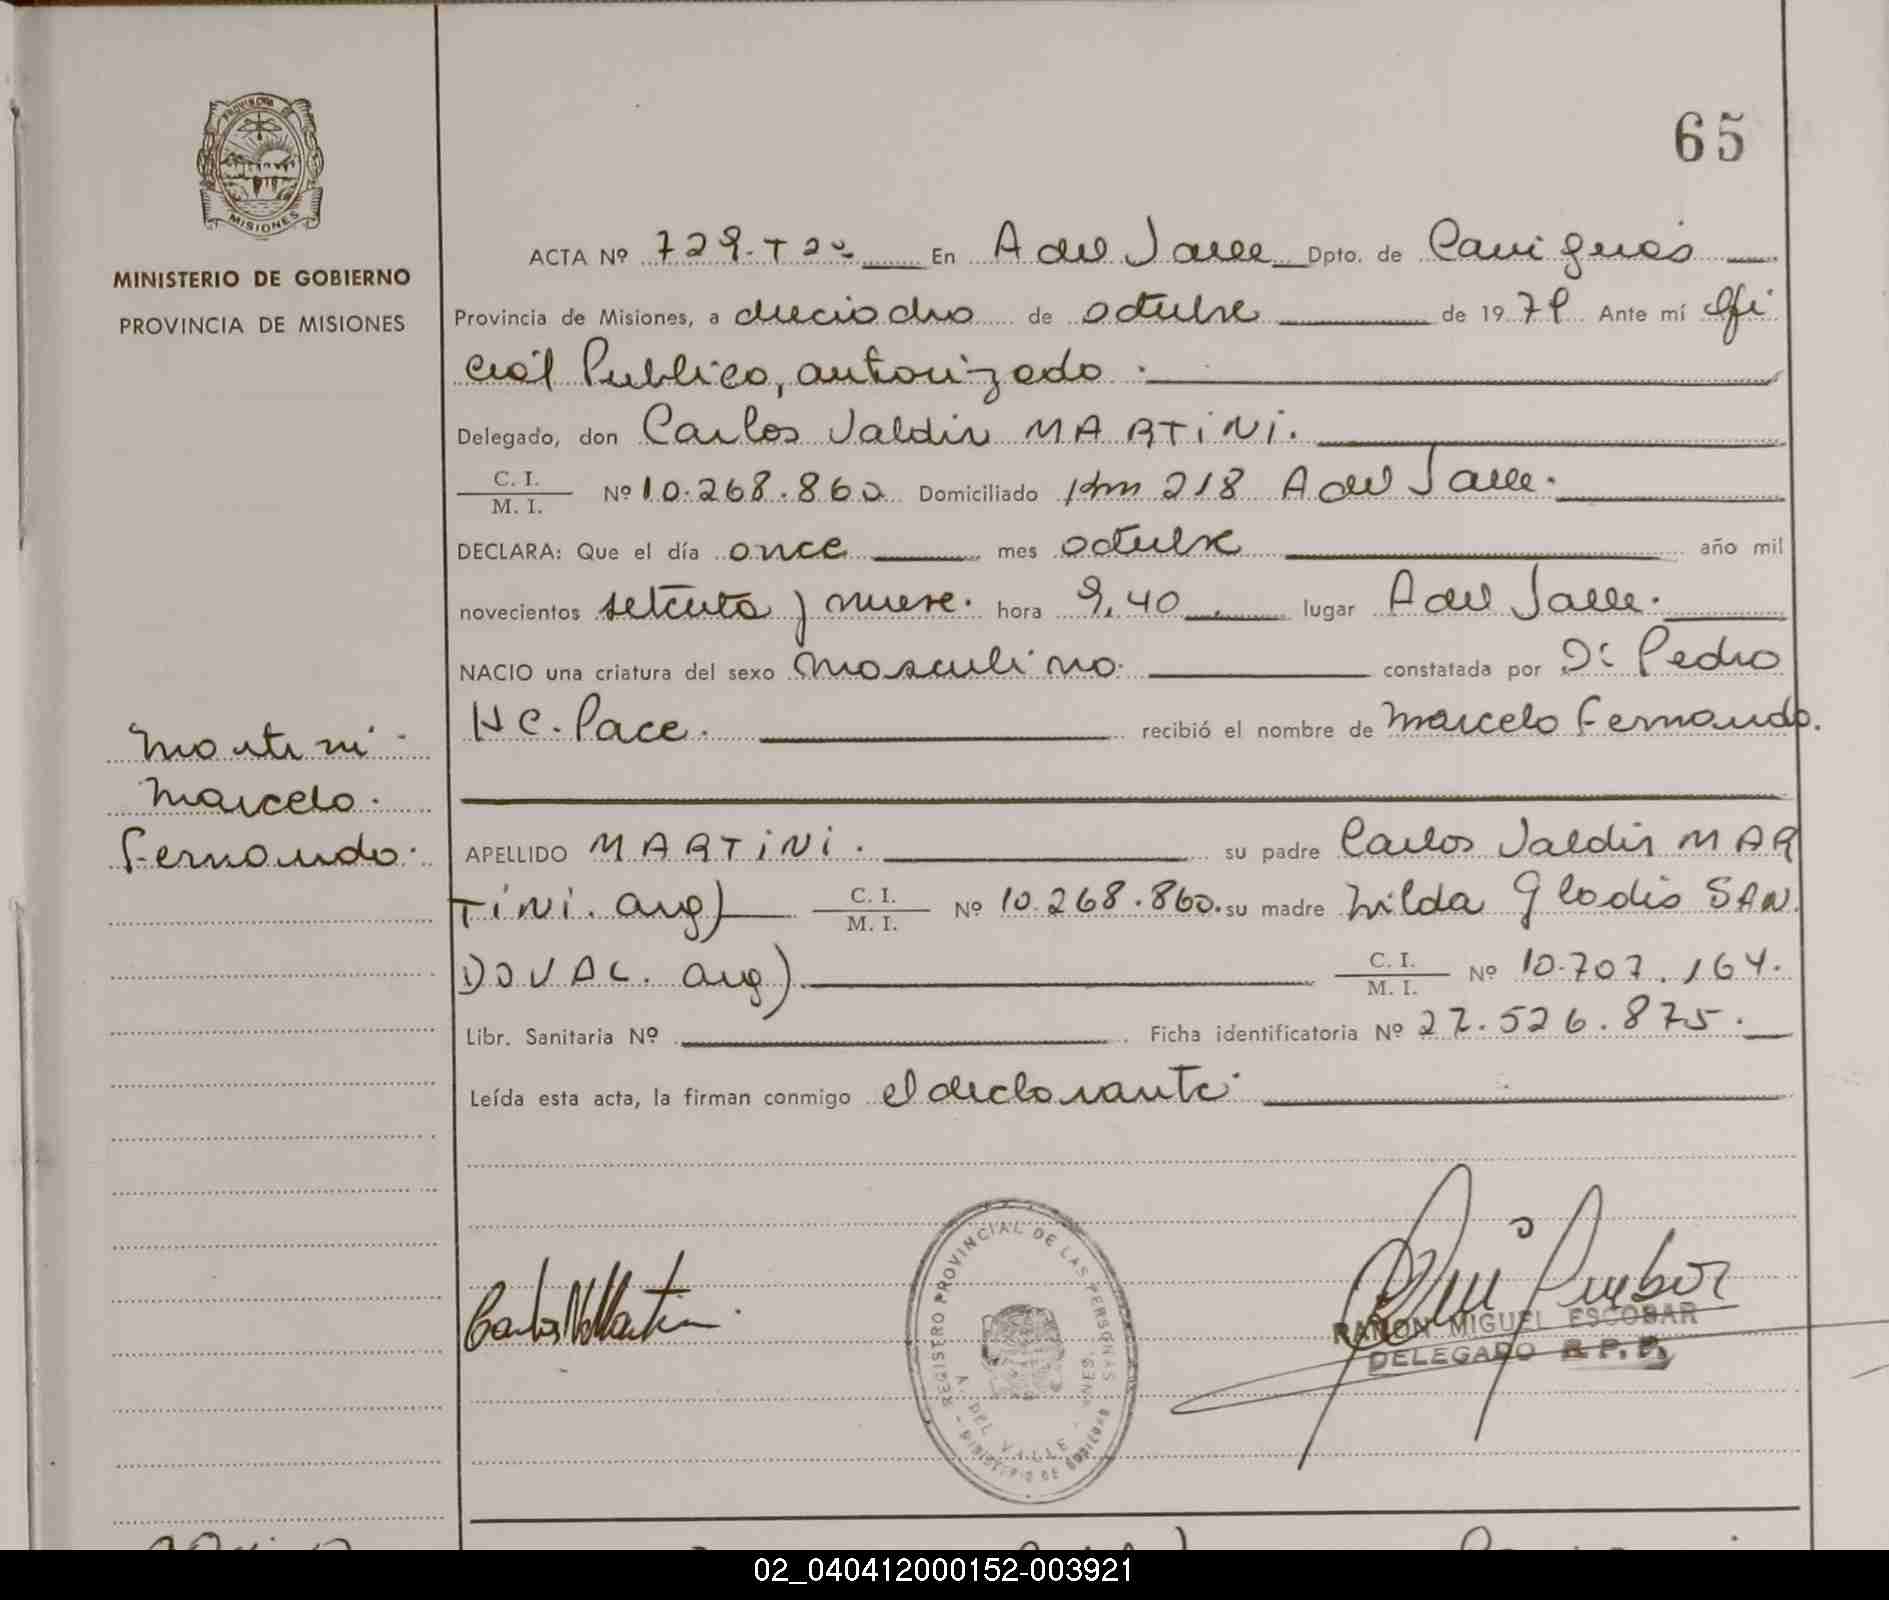 65
PROVINCIA DE
MISIONES
MINISTERIO DE GOBIERNO
PROVINCIA DE MISIONES
ACTA Nº 729. T 2º En A del Valle Dpto. de Cainguás
Provincia de Misiones, a dieciocho de octubre de 1979 Ante mí Ofi
cial Publico, autorizado.
Delegado, don Carlos Valdir MARTiNi.
C. I. / M. I. Nº 10.268.860 Domiciliado Km 218 A del Valle.
DECLARA: Que el día once mes octubre año mil
novecientos setenta y nueve. hora 9,40 lugar A del Valle.
NACIO una criatura del sexo masculino. constatada por Dr Pedro
H C. Pace. recibió el nombre de Marcelo Fernando.
Martini
Marcelo.
Fernando.
APELLIDO MARTiNi. su padre Carlos Valdir MAR
TiNi. arg) C. I. / M. I. Nº 10.268.860. su madre Hilda Gladis SAN
DOVAL. arg) C. I. / M. I. Nº 10.707.164.
Libr. Sanitaria Nº Ficha identificatoria Nº 27.526.875.
Leída esta acta, la firman conmigo el declarante.
REGISTRO PROVINCIAL DE LAS PERSONAS
A. DEL VALLE
MINISTERIO DE GOBIERNO
RAMON MIGUEL ESCOBAR
DELEGADO R. P. P.
02_040412000152-003921